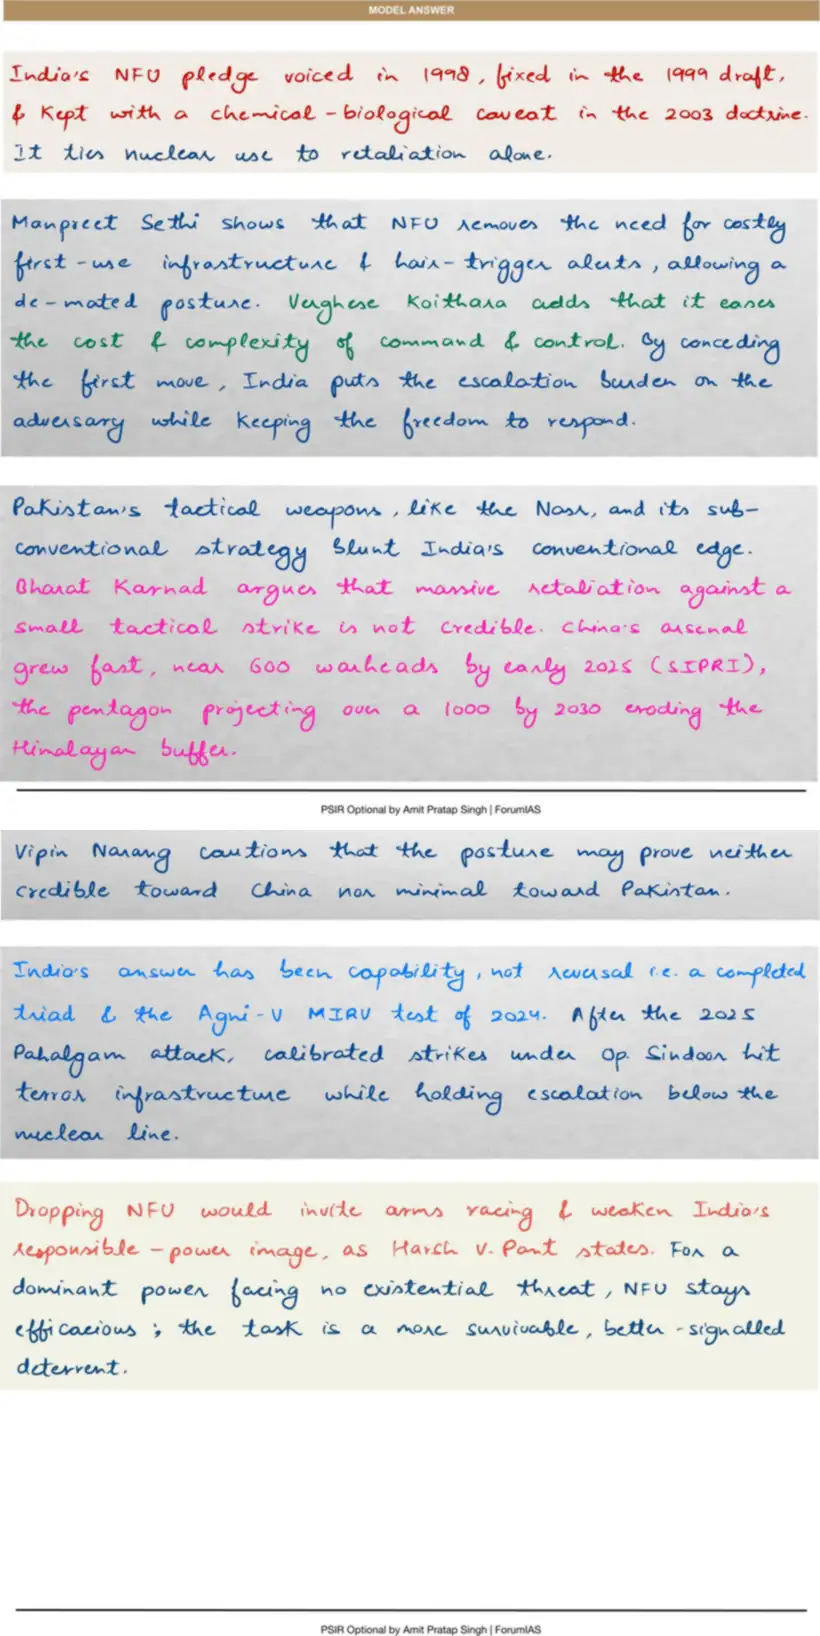 MODEL ANSWER
India's NFU pledge voiced in 1998, fixed in the 1999 draft,
& kept with a chemical-biological caveat in the 2003 doctrine.
It ties nuclear use to retaliation alone.
Manpreet Sethi shows that NFU removes the need for costly
first-use infrastructure & hair-trigger alerts, allowing a
de-mated posture. Verghese Koithara adds that it eases
the cost & complexity of command & control. By conceding
the first move, India puts the escalation burden on the
adversary while keeping the freedom to respond.
Pakistan's tactical weapons, like the Nasr, and its sub-
conventional strategy blunt India's conventional edge.
Bharat Karnad argues that massive retaliation against a
small tactical strike is not credible. China's arsenal
grew fast, near 600 warheads by early 2025 (SIPRI),
the pentagon projecting over a 1000 by 2030 eroding the
Himalayan buffer.
PSIR Optional by Amit Pratap Singh | ForumIAS
Vipin Narang cautions that the posture may prove neither
credible toward China nor minimal toward Pakistan.
India's answer has been capability, not reversal i.e. a completed
triad & the Agni-V MIRV test of 2024. After the 2025
Pahalgam attack, calibrated strikes under Op. Sindoor hit
terror infrastructure while holding escalation below the
nuclear line.
Dropping NFU would invite arms racing & weaken India's
responsible-power image, as Harsh V. Pant states. For a
dominant power facing no existential threat, NFU stays
efficacious; the task is a more survivable, better-signalled
deterrent.
PSIR Optional by Amit Pratap Singh | ForumIAS